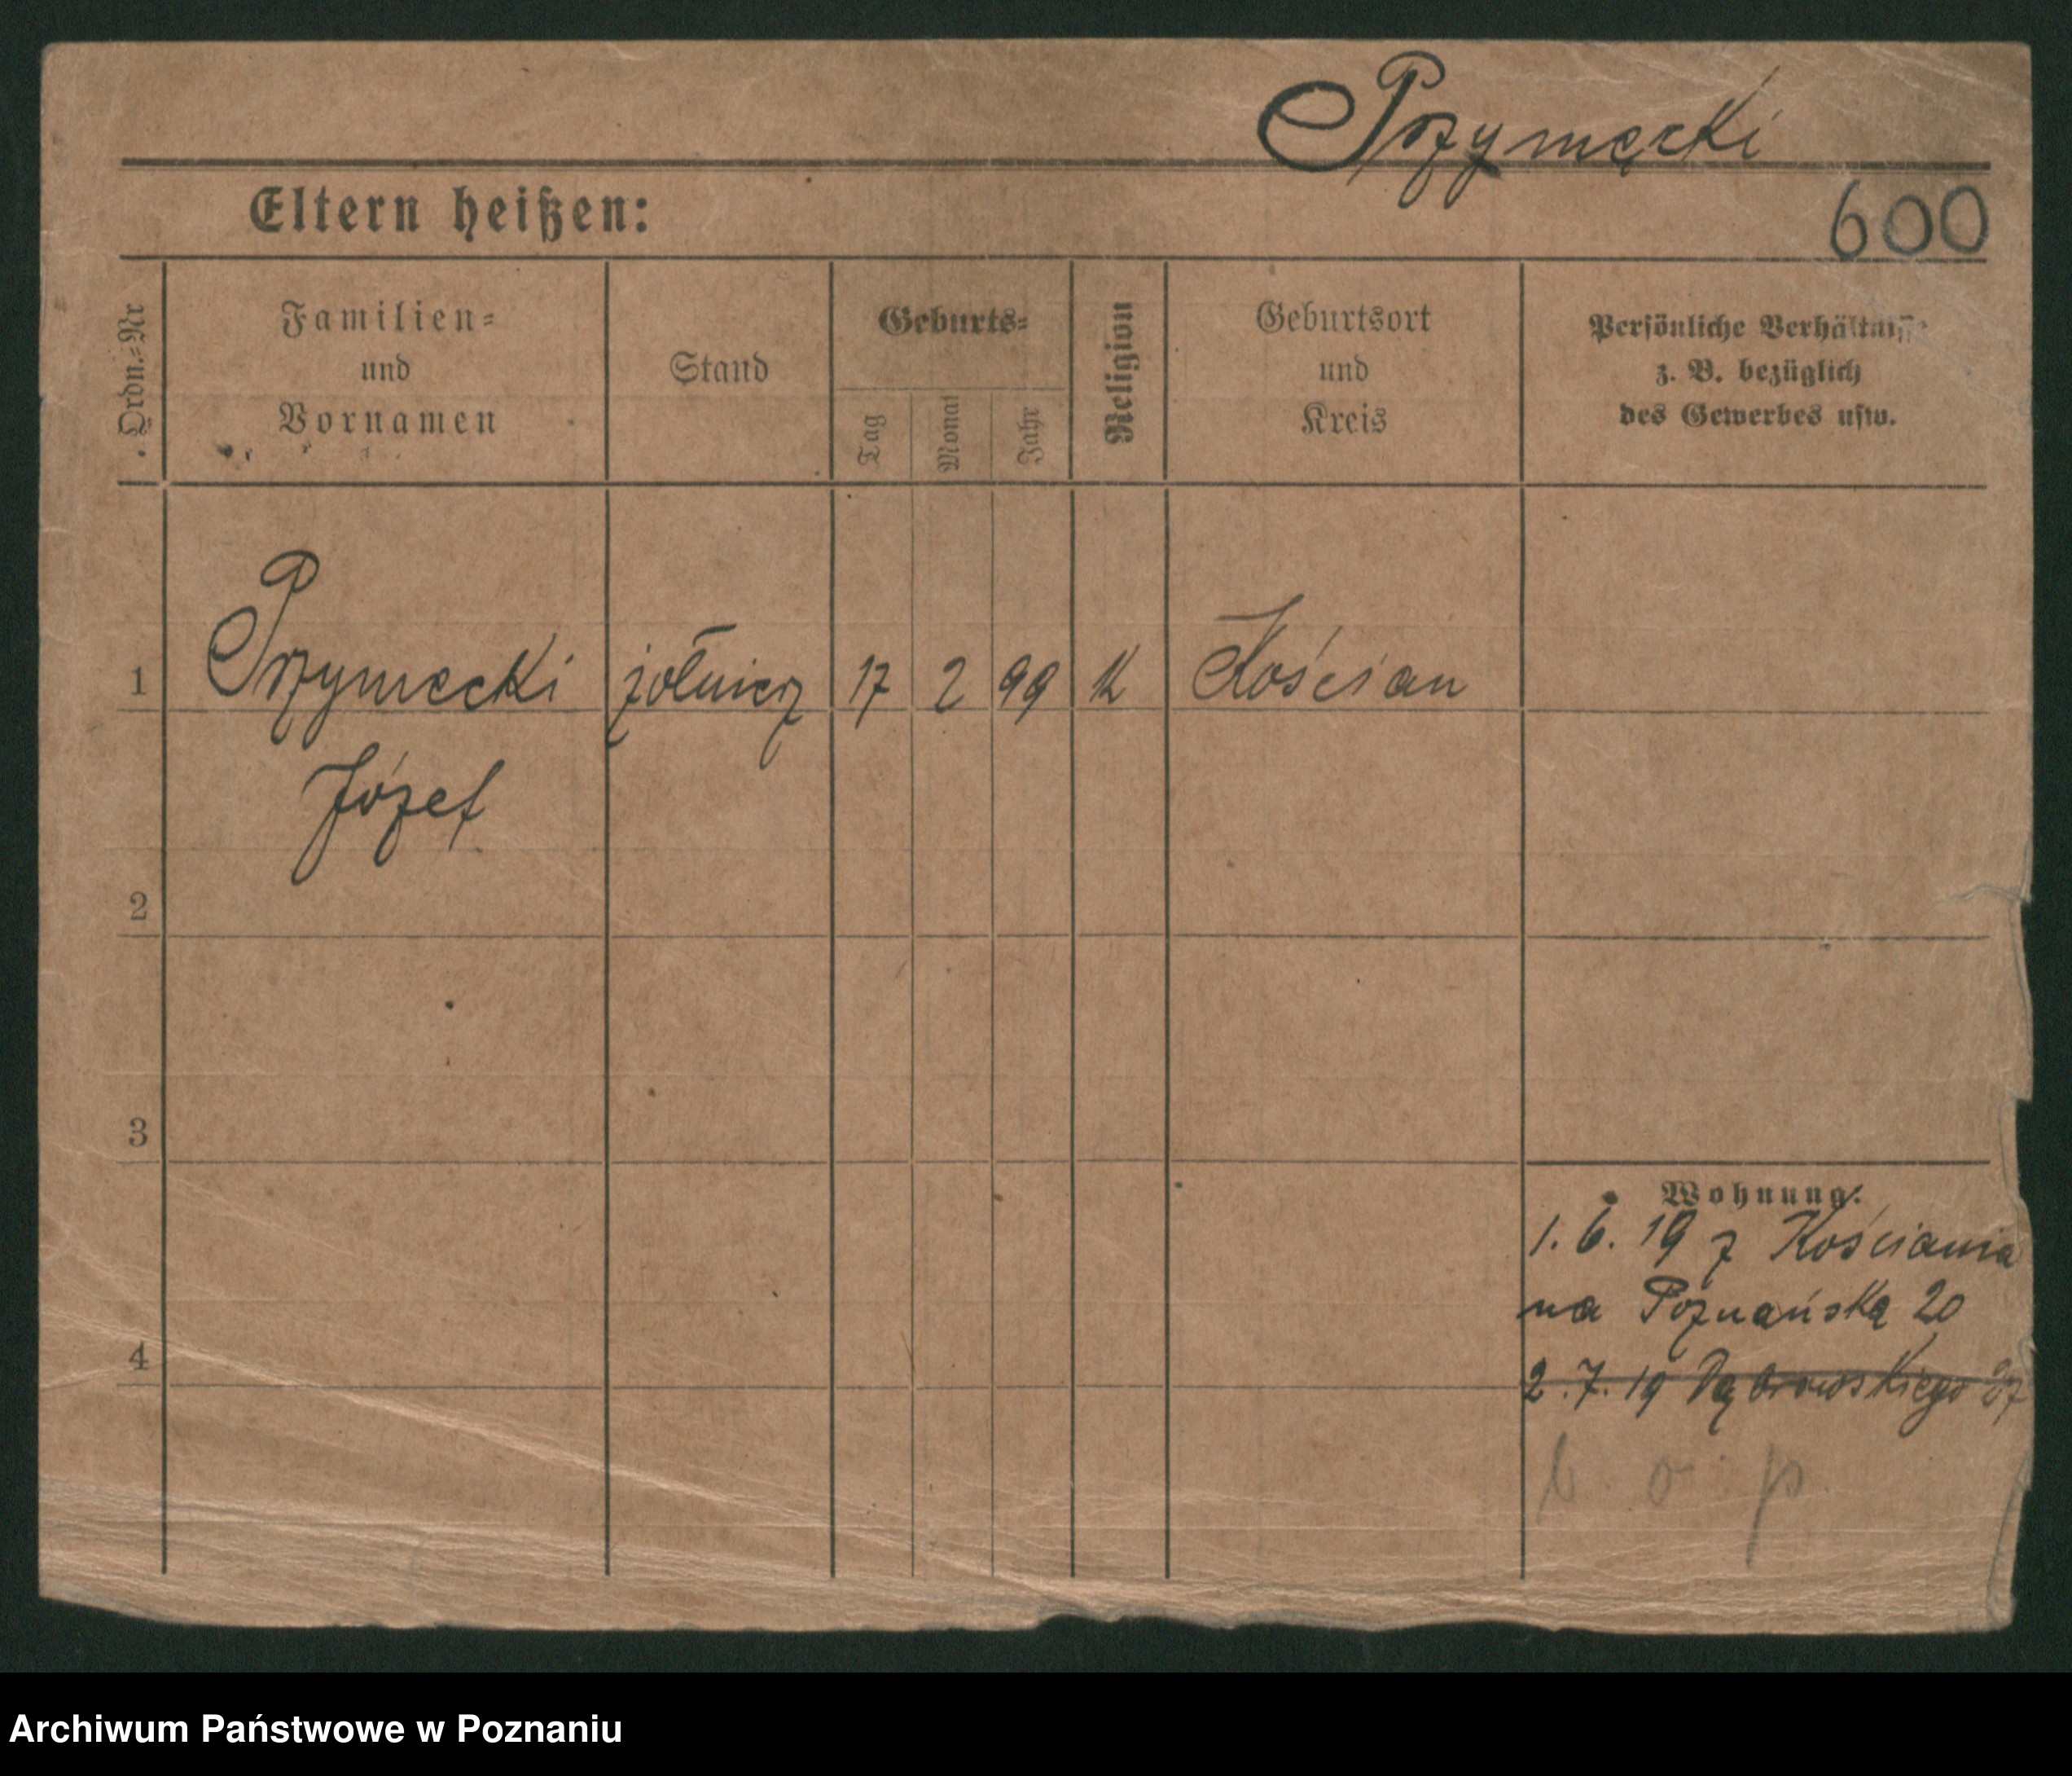 Przymęcki
Eltern heißen:
600
Ordn.-Nr
Familien-
und
Vornamen
Stand
Geburts-
Tag
Monat
Jahr
Religion
Geburtsort
und
Kreis
Persönliche Verhältnisse
z. B. bezüglich
des Gewerbes usw.
1
Przymecki
Józef
żołnierz
17
2
99
K
Kościan
2
3
4
Wohnung:
1. 6. 19 z Kościania
na Poznańska 20
2. 7. 19 Dąbrowskiego
b. o. p.
Archiwum Państwowe w Poznaniu